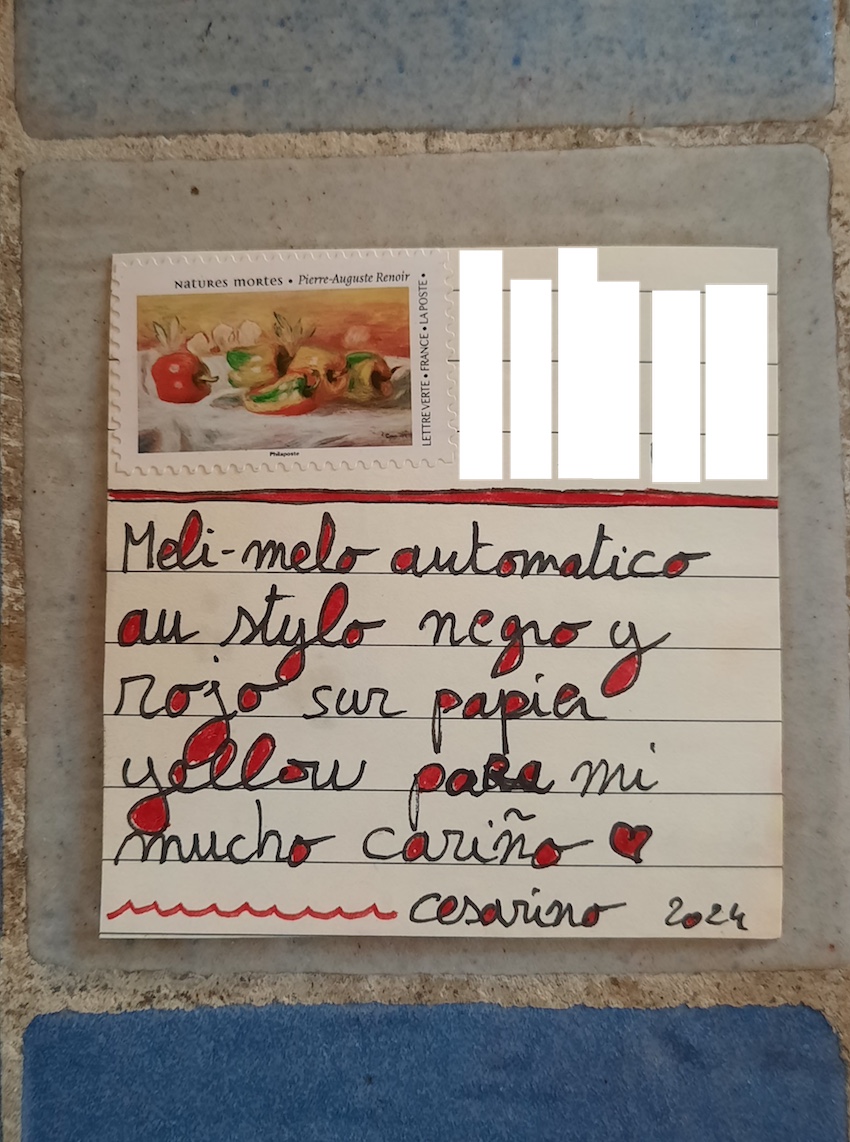 NATURES MORTES • Pierre-Auguste Renoir
LETTRE VERTE • FRANCE • LA POSTE •
Philaposte
Meli-melo automatico
au stylo negro y
rojo sur papier
yellow para mi
mucho cariño ♥
cesarino 2024